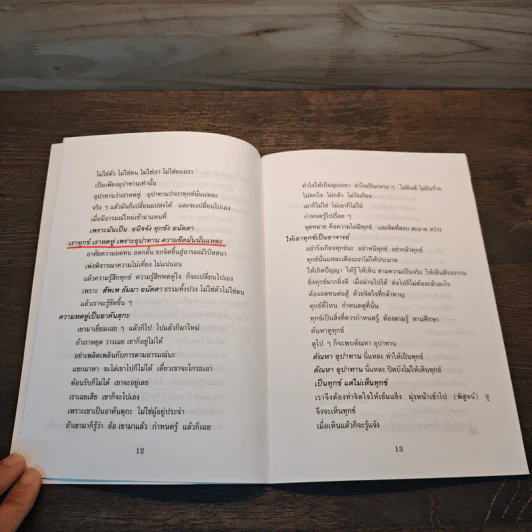 ไม่ใช่ตัว ไม่ใช่ตน ไม่ใช่เรา ไม่ใช่ของเรา
เป็นเพียงอุปาทานเท่านั้น
อุปาทานว่าเราหดหู่ อุปาทานว่าเราทุกข์นั่นแหละ
จริง ๆ แล้วมันก็เปลี่ยนแปลงได้ และจะเปลี่ยนไปเอง
เมื่อมีอารมณ์ใหม่เข้ามาแทนที่
เพราะมันเป็น อนิจจัง ทุกขัง อนัตตา
เราทุกข์ เราหดหู่ เพราะอุปาทาน ความยึดมั่นนั่นแหละ
อาศัยความอดทน อดกลั้น ยกจิตขึ้นสู่อารมณ์วิปัสสนา
เพ่งพิจารณาความไม่เที่ยง ไม่แน่นอน
แล้วความรู้สึกทุกข์ ความรู้สึกหดหู่ใจ ก็จะเปลี่ยนไปเอง
เพราะ สัพเพ ธัมมา อนัตตา ธรรมทั้งปวง ไม่ใช่ตัวไม่ใช่ตน
แล้วเราจะรู้ชัดขึ้น ๆ
ความหดหู่เป็นอาคันตุกะ
เขามาเยี่ยมเฉย ๆ แล้วก็ไป ไปแล้วก็มาใหม่
ถ้าเราหยุด วางเฉย เขาก็อยู่ไม่ได้
อย่าเพลิดเพลินกับการตามอารมณ์นะ
แขกมาหา จะไล่เขาไปก็ไม่ได้ เดี๋ยวเขาจะโกรธเอา
ต้อนรับก็ไม่ได้ เขาจะอยู่เลย
เราเฉยเสีย เขาก็จะไปเอง
เพราะเขาเป็นอาคันตุกะ ไม่ใช่ผู้อยู่ประจำ
ถ้าเขามาก็รู้ว่า อ้อ เขามาแล้ว กำหนดรู้ แล้วก็เฉย
12
ทำใจให้เป็นอุเบกขา ทำใจเป็นกลาง ๆ ไม่ยินดี ไม่ยินร้าย
ไม่ตกใจ ไม่กลัว ไม่รังเกียจ
เอาก็ไม่ใช่ ไม่เอาก็ไม่ใช่
กำหนดรู้ไปเรื่อย ๆ
จุดหมาย คือความไม่มีทุกข์ และจิตที่สงบ สะอาด สว่าง
ให้เอาทุกข์เป็นอาจารย์
อย่ารังเกียจทุกข์นะ อย่าหนีทุกข์ อย่ากลัวทุกข์
ทุกข์นั่นแหละเตือนเราไม่ให้ประมาท
ให้เกิดปัญญา ให้รู้ ให้เห็น ตามความเป็นจริง ให้เห็นสัจธรรม
ยิ่งทุกข์มากยิ่งดี เมื่อผ่านไปได้ ต่อไปก็ไม่ต้องกลัวอะไร
ต้องอดทนต่อสู้ ด้วยจิตใจที่กล้าหาญ
ทุกข์ที่ไหน กำหนดดูที่นั่น
ทุกข์เป็นสิ่งที่ควรกำหนดรู้ ต้องตามรู้ ตามศึกษา
ค้นหาดูทุกข์
ดูไป ๆ ก็จะพบตัณหา อุปาทาน
ตัณหา อุปาทาน นี่แหละ ทำให้เป็นทุกข์
ตัณหา อุปาทาน นี่แหละ ปิดบังไม่ให้เห็นทุกข์
เป็นทุกข์ แต่ไม่เห็นทุกข์
เราจึงต้องทำจิตใจให้เข้มแข็ง มุ่งหน้าเข้าไป (พิสูจน์) ดู
จึงจะเห็นทุกข์
เมื่อเห็นแล้วก็จะรู้แจ้ง
13